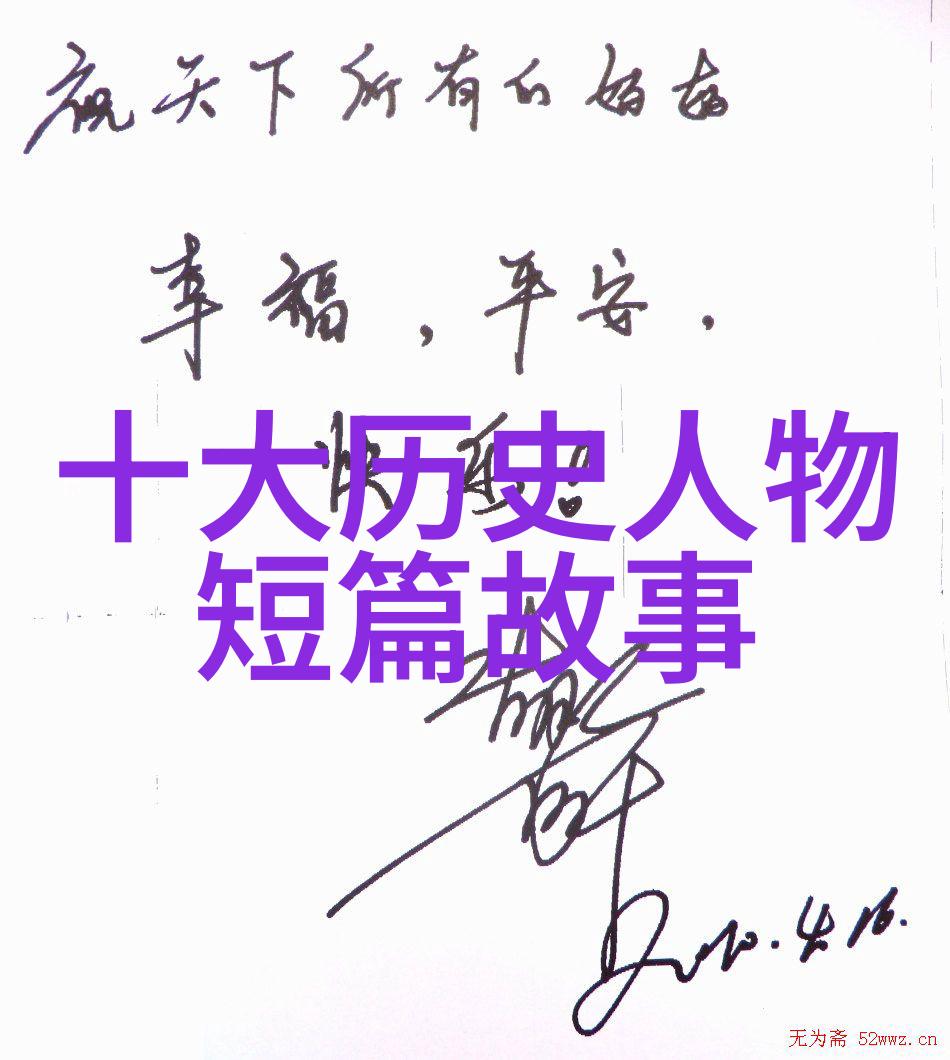 祝天下所有的妈妈
幸福，平安，
快乐！
十大历史人物
短篇故事
2010.4.16.
无为斋 52wwz.cn